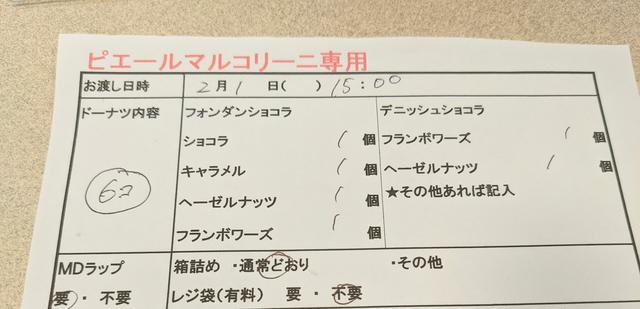 ピエールマルコリーニ専用
お渡し日時 2月1日( ) 15:00
ドーナツ内容 フォンダンショコラ デニッシュショコラ
ショコラ 1個 フランボワーズ 1個
キャラメル 1個 ヘーゼルナッツ 1個
6コ ヘーゼルナッツ 1個 ★その他あれば記入
フランボワーズ 1個
MDラップ 箱詰め ・通常どおり ・その他
要・不要 レジ袋(有料) 要・不要